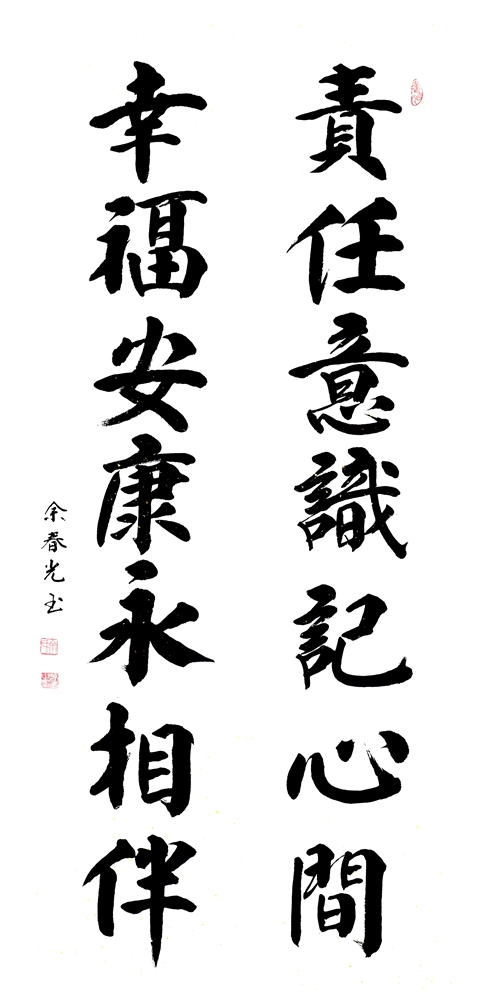 責任意識記心間
幸福安康永相伴
余春光书